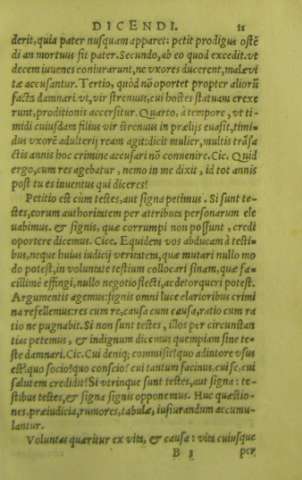 DICENDI. 11
derit, quia pater nusquam apparet: petit prodigus ostẽ
di an mortuus sit pater. Secundo, ab eo quod excedit. vt
decem iuuenes coniurarunt, ne vxores ducerent, malæ vi
tæ accusantur. Tertio, quòd nō oportet propter aliorũ
facta damnari. vt, vir strenuus, cui hostes statuam erexe
runt, proditionis accersitur. Quarto, à tempore, vt ti-
midi cuiusdam filius vir strenuus in prælijs euasit, timi-
dus vxorẽ adulterij ream agit: dicit mulier, multis trãsa
ctis annis hoc crimine accusari nō conuenire. Cic. Quid
ergo, cum res agebatur, nemo in me dixit, id tot annis
post tu es inuentus qui diceres!
Petitio est cùm testes, aut signa petimus. Si sunt te-
stes, eorum authoritatem per attributa personarum ele
uabimus. & signis, quæ corrumpi non possunt, credi
oportere dicemus. Cic. Equidem vos abducam à testi-
bus, neque huius iudicij veritatem, quæ mutari nullo mo
do potest, in voluntate testium collocari sinam, quæ fa-
cillimè effingi, nullo negotio flecti, ac detorqueri potest.
Argumentis agemus: signis omni luce clarioribus crimi
na refellemus: res cum re, causa cum causa, ratio cum ra
tio ne pugnabit. Si non sunt testes, illos per circunstan
tias petemus, & indignum dicemus quempiam sine te-
ste damnari. Cic. Cui deniq; commisit? quo adiutore vsus
est? quo socio? quo conscio? cui tantum facinus, cui se, cui
salutem credidit? Si vtrinque sunt testes, aut signa: te-
stibus testes, & signa signis opponemus. Huc quæstio-
nes. præiudicia, rumores, tabulæ, iusiurandum accumu-
lantur.
Voluntas quæritur ex vita, & causa: vita cuiusque
B 3 per